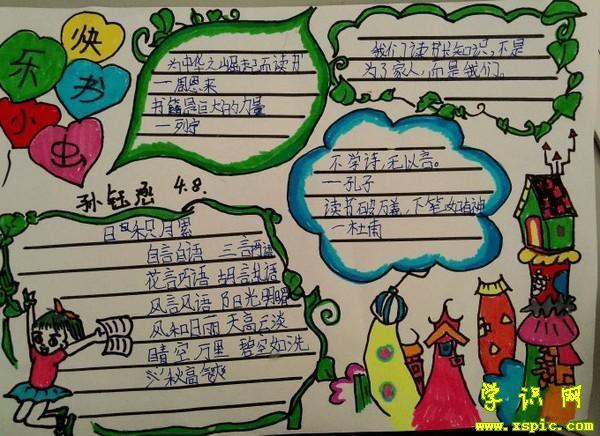 快
乐
书
小
虫
为中华之崛起而读书
—周恩来
书籍是巨大的力量
—列宁
我们读书长知识,不是
为了家人,而是我们。
不学诗,无以言。
—孔子
读书破万卷,下笔如有神
—杜甫
孙钰 4.8.
日积月累
自言自语 三言两语
花言巧语 胡言乱语
风言风语 阳光明媚
风和日丽 天高云淡
晴空万里 碧空如洗
秋高气爽
学识网
www.xspic.com